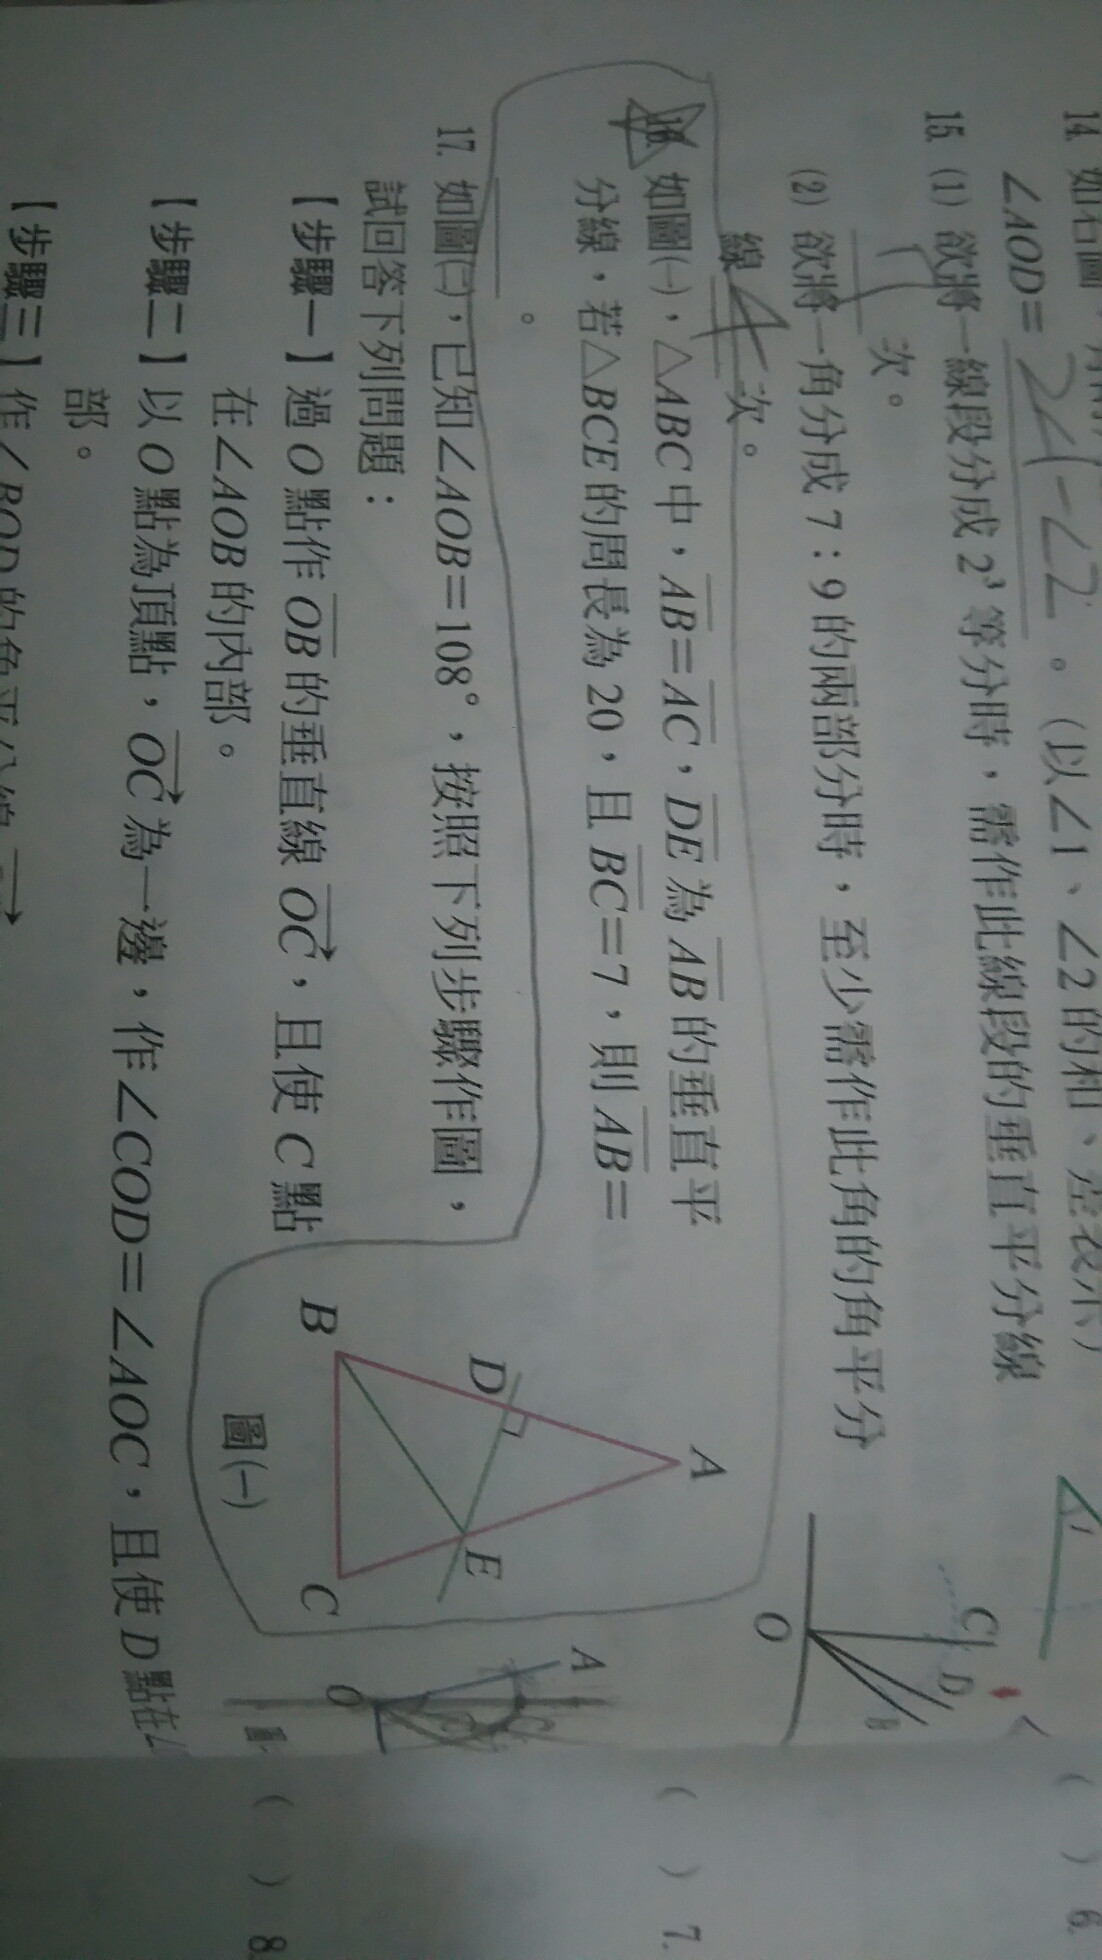 14. 如右圖，
∠AOD= 21-∠2 。(以∠1、∠2的和、差表示)
15. (1) 欲將一線段分成 2³ 等分時，需作此線段的垂直平分線
次。
(2) 欲將一角分成 7：9 的兩部分時，至少需作此角的角平分
線 4 次。
16. 如圖㈠，△ABC 中，AB=AC，DE 為 AB 的垂直平
分線，若△BCE 的周長為 20，且 BC=7，則 AB=
。
17. 如圖㈡，已知∠AOB=108°，按照下列步驟作圖，
試回答下列問題：
【步驟一】過 O 點作 OB 的垂直線 OC，且使 C 點
在∠AOB 的內部。
【步驟二】以 O 點為頂點，OC 為一邊，作∠COD=∠AOC，且使 D 點在∠
部。
【步驟三】作∠BOD 的角平分線
A
B
C
D
E
圖㈠
C
D
B
O
A
C
O
( ) 6.
( ) 7.
( ) 8.